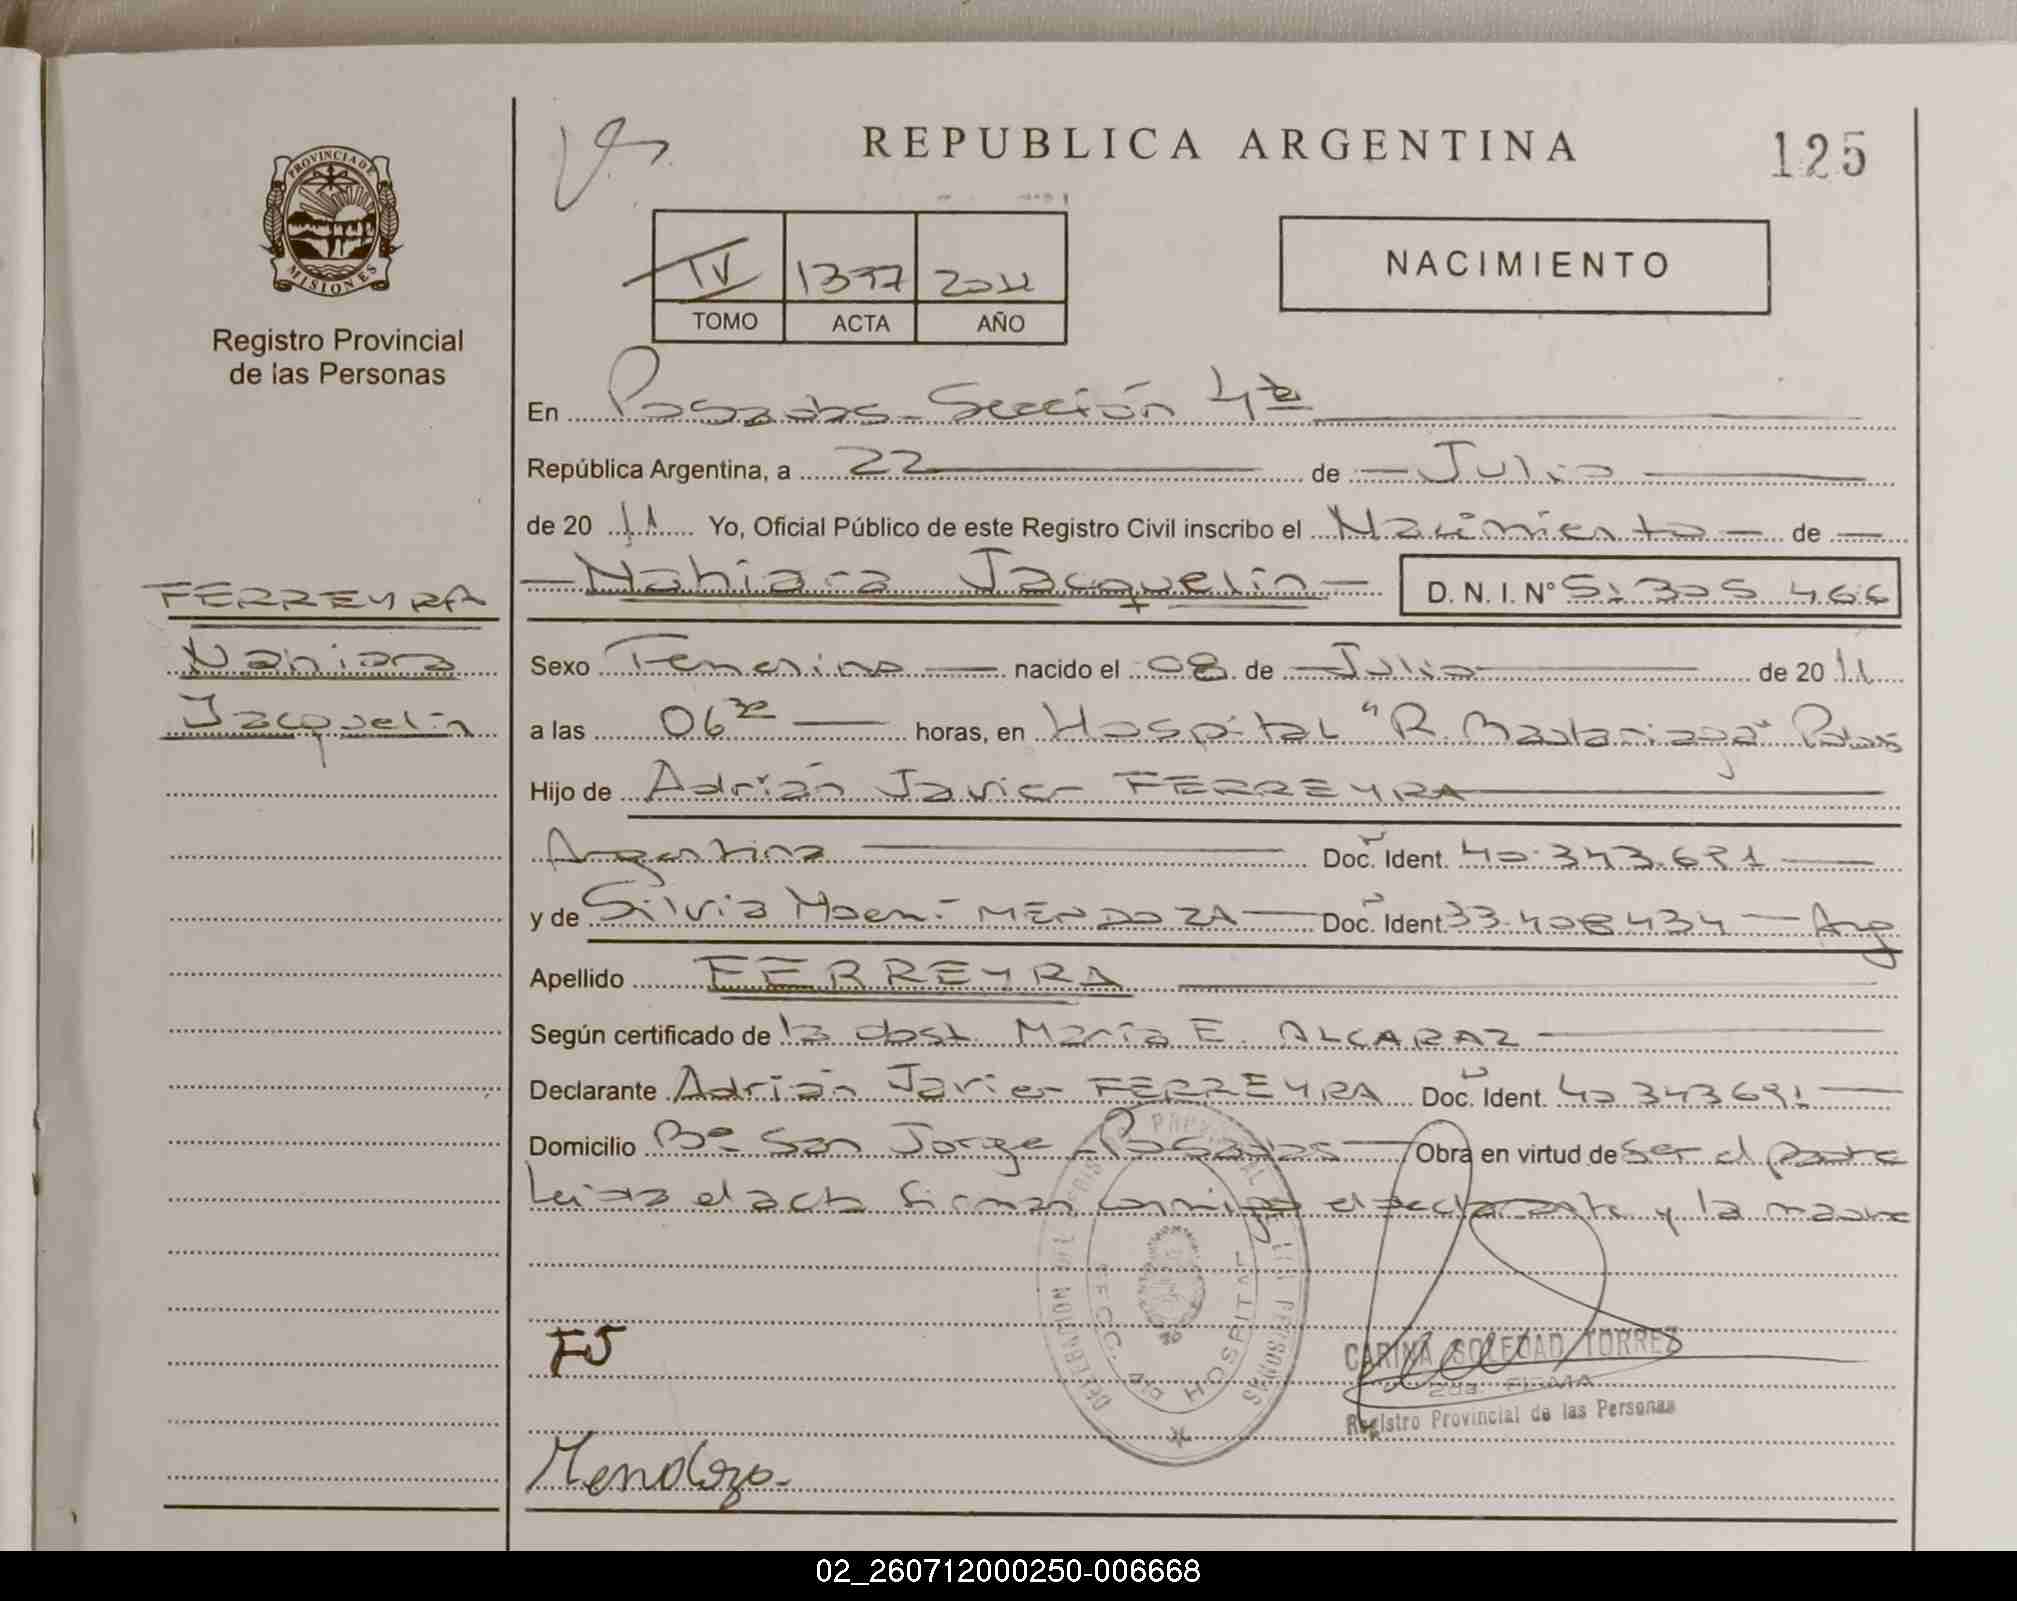 PROVINCIA DE
MISIONES
Registro Provincial
de las Personas
FERREYRA
Nahiara
Jacquelin
REPUBLICA ARGENTINA
125
IV 1397 2011
TOMO ACTA AÑO
NACIMIENTO
En Posadas - Sección 4ta
República Argentina, a 22 de Julio
de 2011 Yo, Oficial Público de este Registro Civil inscribo el Nacimiento de
Nahiara Jacquelin D. N. I. Nº 51 305 466
Sexo Femenino nacido el 08 de Julio de 2011
a las 06 horas, en Hospital "R. Madariaga" Pdas
Hijo de Adrián Javier FERREYRA
Argentina Doc. Ident. 40.343.691
y de Silvia Noemí MENDOZA Doc. Ident 33.408434 - Arg
Apellido FERREYRA
Según certificado de la obst. María E. ALCARAZ
Declarante Adrián Javier FERREYRA Doc. Ident. 40 343691
Domicilio Bº San Jorge Posadas Obra en virtud de ser el padre
Leída el acta firman conmigo el declarante y la madre
FJ
HOSPITAL
CARINA SOLEDAD TORRES
2da. FIRMA
Registro Provincial de las Personas
Mendoza.
02_260712000250-006668